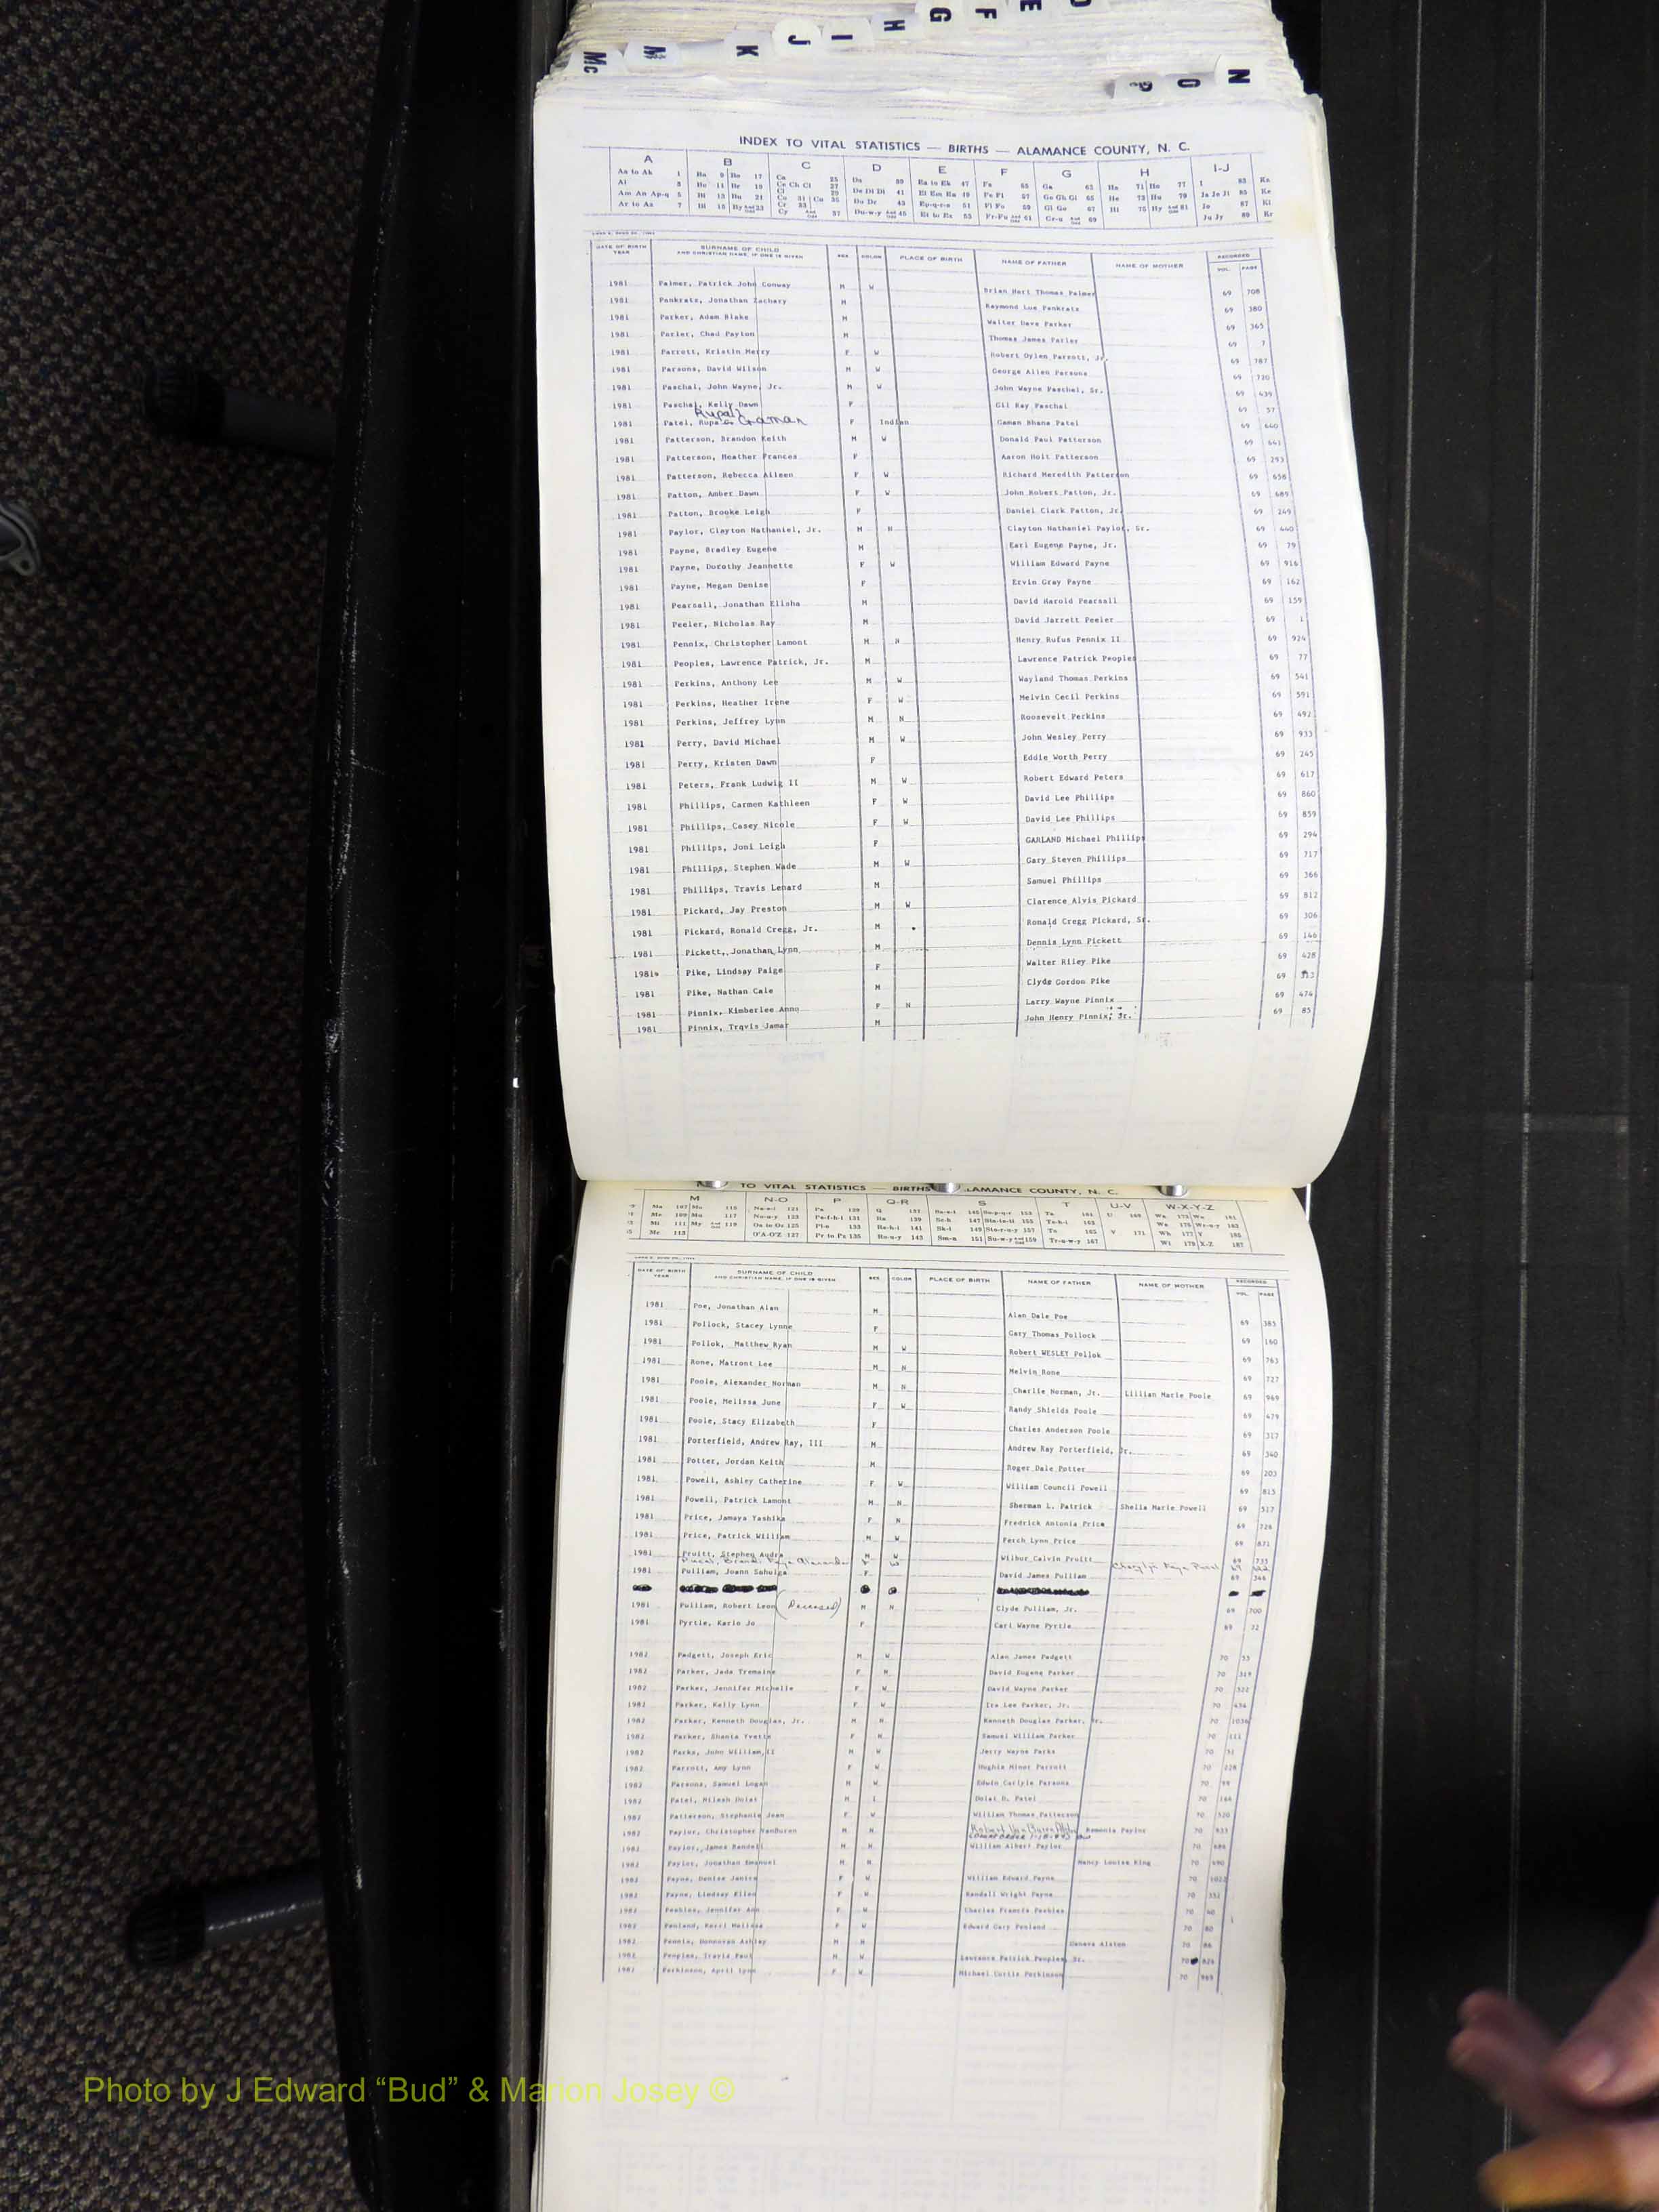 D
E
F
G
H
I
J
K
M
Mc
N
O
P
INDEX TO VITAL STATISTICS — BIRTHS — ALAMANCE COUNTY, N. C.
A B C D E F G H I-J
DATE OF BIRTH YEAR SURNAME OF CHILD AND CHRISTIAN NAME, IF ONE IS GIVEN SEX COLOR PLACE OF BIRTH NAME OF FATHER NAME OF MOTHER RECORDED VOL. PAGE
1981 Palmer, Patrick John Conway M W Brian Hort Thomas Palmer 69 708
1981 Pankratz, Jonathan Zachary M Raymond Lue Pankratz 69 380
1981 Parker, Adam Blake M Walter Dave Parker 69 365
1981 Parler, Chad Payton M Thomas James Parler 69 7
1981 Parrott, Kristin Merry F W Robert Dylen Parrott, Jr. 69 787
1981 Parsons, David Wilson M W George Allen Parsons 69 720
1981 Paschal, John Wayne, Jr. M W John Wayne Paschal, Sr. 69 439
1981 Paschal, Kelly Dawn F Gil Ray Paschal 69 57
1981 Patel, Rupa Gaman F Indian Gaman Bhana Patel 69 640
1981 Patterson, Brandon Keith M W Donald Paul Patterson 69 641
1981 Patterson, Heather Frances F Aaron Holt Patterson 69 293
1981 Patterson, Rebecca Aileen F W Richard Meredith Patterson 69 658
1981 Patton, Amber Dawn F W John Robert Patton, Jr. 69 689
1981 Patton, Brooke Leigh F Daniel Clark Patton, Jr. 69 249
1981 Paylor, Clayton Nathaniel, Jr. M N Clayton Nathaniel Paylor, Sr. 69 440
1981 Payne, Bradley Eugene M Earl Eugene Payne, Jr. 69 79
1981 Payne, Dorothy Jeannette F W William Edward Payne 69 916
1981 Payne, Megan Denise F Ervin Gray Payne 69 162
1981 Pearsall, Jonathan Elisha M David Harold Pearsall 69 159
1981 Peeler, Nicholas Ray M David Jarrett Peeler 69 1
1981 Pennix, Christopher Lamont M N Henry Rufus Pennix II 69 924
1981 Peoples, Lawrence Patrick, Jr. M Lawrence Patrick Peoples 69 77
1981 Perkins, Anthony Lee M W Wayland Thomas Perkins 69 541
1981 Perkins, Heather Irene F W Melvin Cecil Perkins 69 591
1981 Perkins, Jeffrey Lynn M N Roosevelt Perkins 69 492
1981 Perry, David Michael M W John Wesley Perry 69 933
1981 Perry, Kristen Dawn F Eddie Worth Perry 69 245
1981 Peters, Frank Ludwig II M W Robert Edward Peters 69 617
1981 Phillips, Carmen Kathleen F W David Lee Phillips 69 860
1981 Phillips, Casey Nicole F W David Lee Phillips 69 859
1981 Phillips, Joni Leigh F GARLAND Michael Phillips 69 294
1981 Phillips, Stephen Wade M W Gary Steven Phillips 69 717
1981 Phillips, Travis Lenard M Samuel Phillips 69 366
1981 Pickard, Jay Preston M W Clarence Alvis Pickard 69 812
1981 Pickard, Ronald Cregg, Jr. M Ronald Cregg Pickard, Sr. 69 306
1981 Pickett, Jonathan Lynn M Dennis Lynn Pickett 69 146
1981 Pike, Lindsay Paige F Walter Riley Pike 69 428
1981 Pike, Nathan Cale M Clyde Gordon Pike 69 313
1981 Pinnix, Kimberlee Anne F N Larry Wayne Pinnix 69 474
1981 Pinnix, Travis Jamar M John Henry Pinnix, Jr. 69 85
TO VITAL STATISTICS — BIRTHS ALAMANCE COUNTY, N. C.
M N-O P Q-R S T U-V W-X-Y-Z
DATE OF BIRTH YEAR SURNAME OF CHILD AND CHRISTIAN NAME, IF ONE IS GIVEN SEX COLOR PLACE OF BIRTH NAME OF FATHER NAME OF MOTHER RECORDED VOL. PAGE
1981 Poe, Jonathan Alan M Alan Dale Poe 69 385
1981 Pollock, Stacey Lynne F Gary Thomas Pollock 69 160
1981 Pollok, Matthew Ryan M W Robert WESLEY Pollok 69 763
1981 Rone, Matront Lee M N Melvin Rone 69 727
1981 Poole, Alexander Norman M N Charlie Norman, Jr. Lillian Marie Poole 69 969
1981 Poole, Melissa June F W Randy Shields Poole 69 479
1981 Poole, Stacy Elizabeth F Charles Anderson Poole 69 317
1981 Porterfield, Andrew Ray, III M Andrew Ray Porterfield, Jr. 69 340
1981 Potter, Jordan Keith M Roger Dale Potter 69 203
1981 Powell, Ashley Catherine F W William Council Powell 69 815
1981 Powell, Patrick Lamont M N Sherman L. Patrick Shelia Marie Powell 69 517
1981 Price, Jamaya Yashika F N Fredrick Antonia Price 69 726
1981 Price, Patrick William M W Perch Lynn Price 69 871
1981 Pruitt, Stephen Audra M W Wilbur Calvin Pruitt 69 735
1981 Pulliam, Joann Sahulga F David James Pulliam 69 346
1981 Pulliam, Robert Leon (Deceased) M N Clyde Pulliam, Jr. 69 700
1981 Pyrtle, Karie Jo F Carl Wayne Pyrtle 69 72
1982 Padgett, Joseph Eric M W Alan James Padgett 70 35
1982 Parker, Jada Tremaine F N David Eugene Parker 70 319
1982 Parker, Jennifer Michelle F W David Wayne Parker 70 322
1982 Parker, Kelly Lynn F W Ira Lee Parker, Jr. 70 434
1982 Parker, Kenneth Douglas, Jr. M N Kenneth Douglas Parker, Sr. 70 1036
1982 Parker, Shania Yvette F N Samuel William Parker 70 111
1982 Parks, John William, II M W Jerry Wayne Parks 70 51
1982 Parrott, Amy Lynn F W Hughie Minor Parrott 70 228
1982 Parsons, Samuel Logan M W Edwin Carlyle Parsons 70 99
1982 Patel, Nilesh Dolat M I Dolat D. Patel 70 166
1982 Patterson, Stephanie Jean F W William Thomas Patterson 70 520
1982 Paylor, Christopher VanBuren M N Remonia Paylor 70 833
1982 Paylor, James Randall M N William Albert Paylor 70 686
1982 Paylor, Jonathan Emanuel M N Nancy Louise King 70 490
1982 Payne, Denise Janice F W William Edward Payne 70 1022
1982 Payne, Lindsay Ellen F W Randall Wright Payne 70 332
1982 Peebles, Jennifer Ann F W Charles Francis Peebles 70 40
1982 Penland, Kerri Melissa F W Edward Gary Penland 70 80
1982 Pennix, Donnovan Ashley M N Geneva Alston 70 86
1982 Peoples, Travis Paul M W Lawrence Patrick Peoples, Sr. 70 826
1982 Perkinson, April Lynn F W Michael Curtis Perkinson 70 969
Photo by J Edward “Bud” & Marion Josey ©